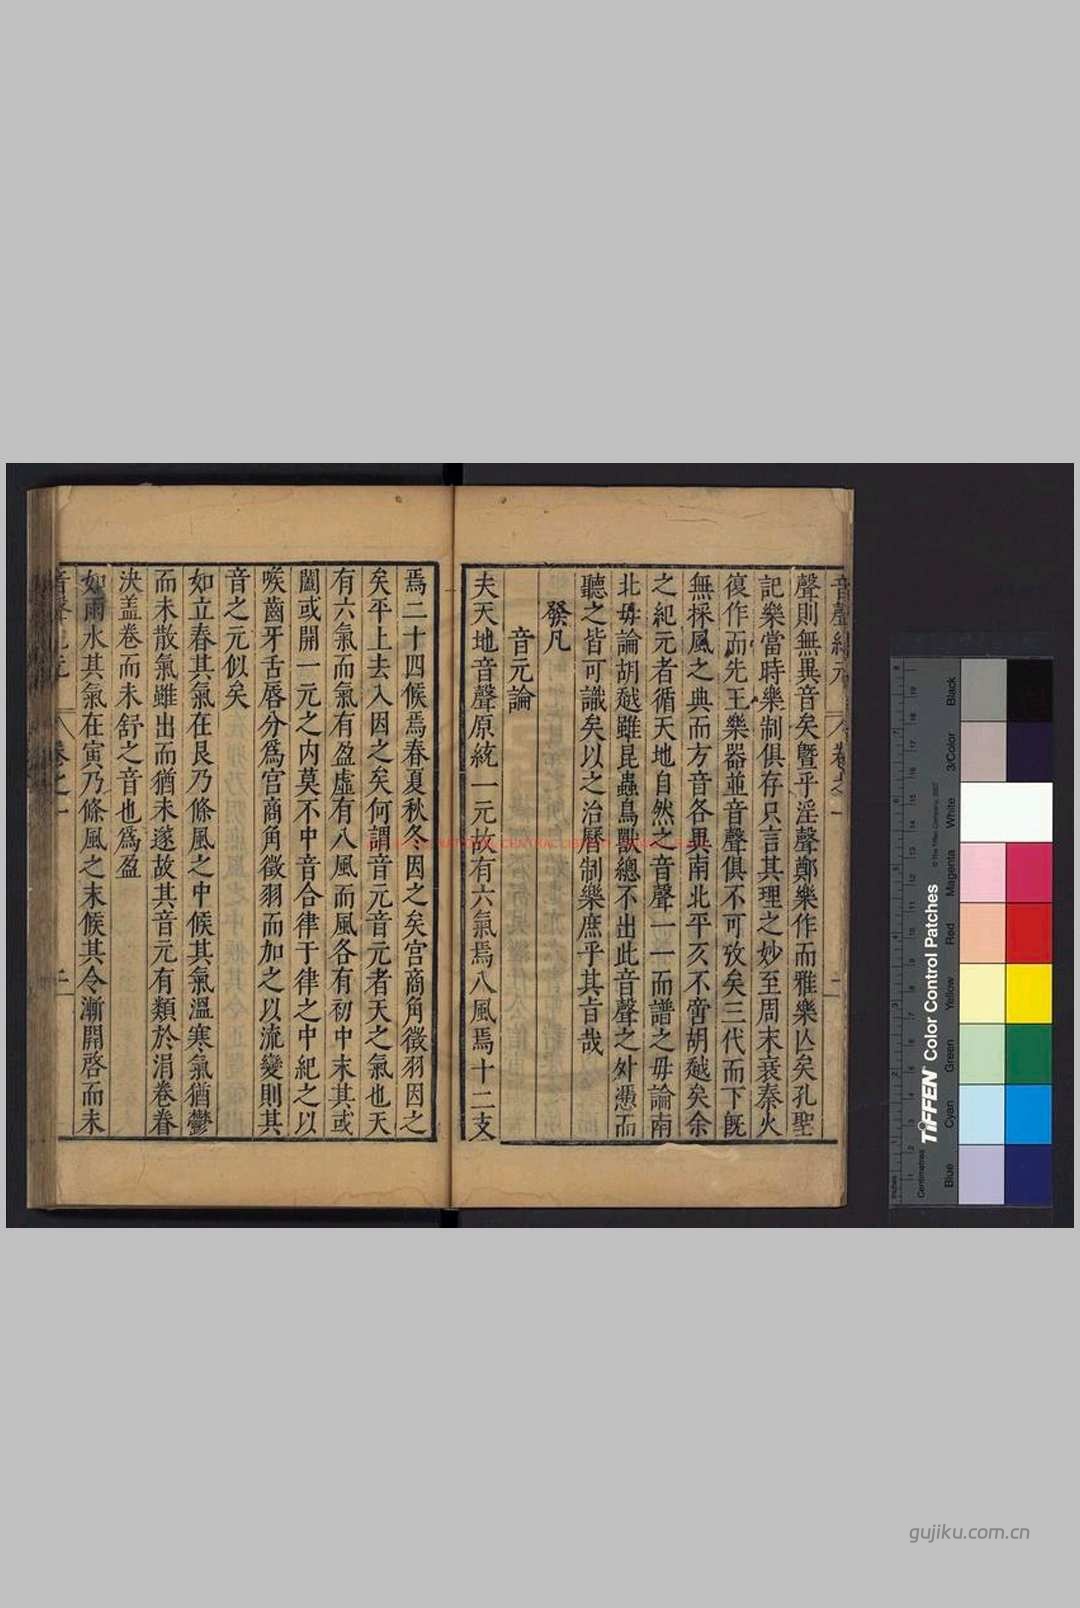 音聲紀元 卷之一 二
聲則無異音矣曁乎淫聲鄭樂作而雅樂亾矣孔聖
記樂當時樂制俱存只言其理之妙至周末衰秦火
復作而先王樂器並音聲俱不可攷矣三代而下旣
無採風之典而方音各異南北平亥不啻胡越矣余
之紀元者循天地自然之音聲一一而譜之毋論南
北毋論胡越雖昆蟲鳥獸總不出此音聲之外憑而
聽之皆可識矣以之治曆制樂庶乎其旨哉
發凡
音元論
夫天地音聲原統一元故有六氣焉八風焉十二支
焉二十四候焉春夏秋冬因之矣宫商角徵羽因之
矣平上去入因之矣何謂音元音元者天之氣也天
有六氣而氣有盈虛有八風而風各有初中末其或
闔或開一元之内莫不中音合律于律之中紀之以
喉齒牙舌唇分爲宫商角徵羽而加之以流變則其
音之元似矣
如立春其氣在艮乃條風之中候其氣溫寒氣猶鬱
而未散氣雖出而猶未遂故其音元有類於涓卷眷
決盖卷而未舒之音也爲盈
如雨水其氣在寅乃條風之末候其令漸開啓而未
音聲紀元 卷之一 二
NATIONAL CENTRAL LIBRARY
TIFFEN Color Control Patches
© The Tiffen Company, 2007
Centimetres
Inches
Blue
Cyan
Green
Yellow
Red
Magenta
White
3/Color
Black
gujiku.com.cn